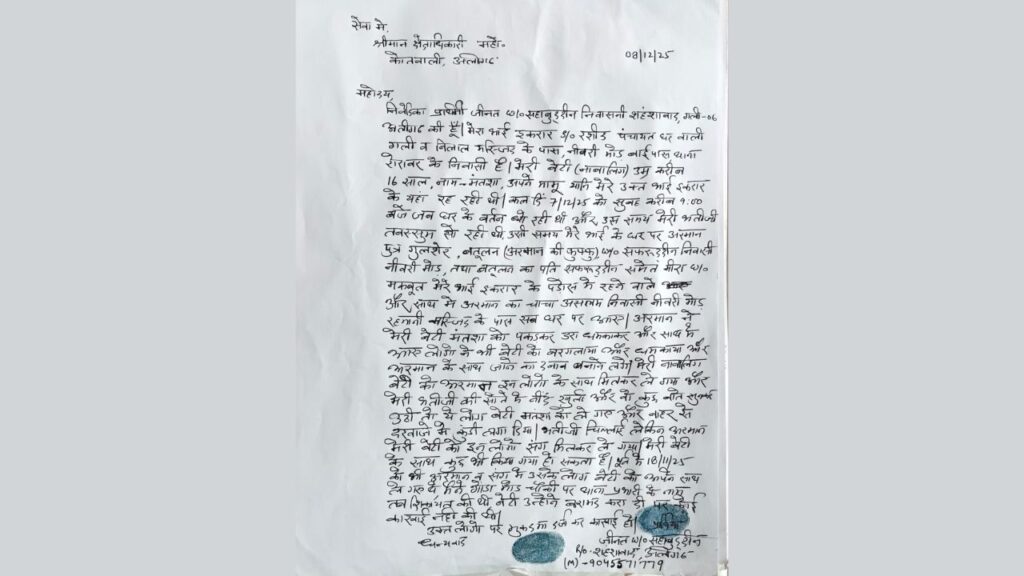 सेवा मे,
श्रीमान क्षेत्राधिकारी महो०
कोतवाली, अलीगढ़
08/12/25
महोदय,
निवेदिका प्रार्थिनी जीनत w/o सहाबुद्दीन निवासनी शहंशाबाद, गली-06
अलीगढ की हूँ। मेरा भाई इकरार s/o रशीद पंचायत घर वाली
गली व बिलाल मस्जिद के पास, नीवरी मोड बाई पास थाना
रोरावर के निवासी है। मेरी बेटी (नाबालिग) उम्र करीब
16 साल, नाम-मंतशा, अपने मामू यानि मेरे उक्त भाई इकरार
के यहां रह रही थी। कल दि 7/12/25 को सुबह करीब 9:00
बजे जब घर के बर्तन धो रही थी और उस समय मेरी भतीजी
तबस्सुम सो रही थी उसी समय मेरे भाई के घर पर अरमान
पुत्र गुलशेर, बतूलन (अरमान की फुफ्फु) w/o सफरूद्दीन निवासी
नीवरी मोड, तथा बतूलन का पति सफरूद्दीन समेत मीरा w/o
मकबूल मेरे भाई इकरार के पडोस मे रहने वाले
और साथ मे अरमान का चाचा असलम निवासी नीवरी मोड
रहमानी मस्जिद के पास सब घर पर आए। अरमान ने
मेरी बेटी मंतशा को पकडकर डरा धमकाकर और साथ मे
आए लोगो ने भी बेटी को बरगलाया और धमकाया और
अरमान के साथ जाने का दबाव बनाने लगे। मेरी नाबालिग
बेटी को अरमान इन लोगो के साथ मिलकर ले गया और
मेरी भतीजी की सोने के बीच खुली और वो कुछ
उठी तो ये लोग बेटी मंतशा को ले गए और बाहर से
दरवाजे मे कुंदी लगा दिया। भतीजी चिल्लाई लेकिन अरमान
मेरी बेटी को इन लोगो संग मिलकर ले गया। मेरी बेटी
के साथ कुछ भी किया गया हो सकता है। पूर्व मे 18/11/25
को भी अरमान व संग मे उसके लोग बेटी को अपने साथ
ले गए थे मैने गोंडा मोड चौकी पर थाना प्रभारी के नाम
तब शिकायत की थी बेटी उन्होने बरामद करा दी पर कोई
कारवाई नही की थी।
उक्त लोगो पर मुकदमा दर्ज कर कारवाई हो।
धन्यवाद
जीनत w/o सहाबुद्दीन
R/o- शहंशाबाद, अलीगढ
(M) - 9045571779